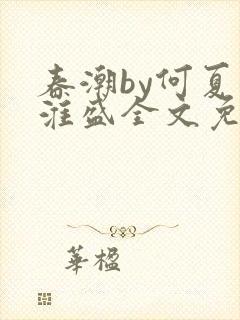 春潮by何夏
淮盛全文免
華楹